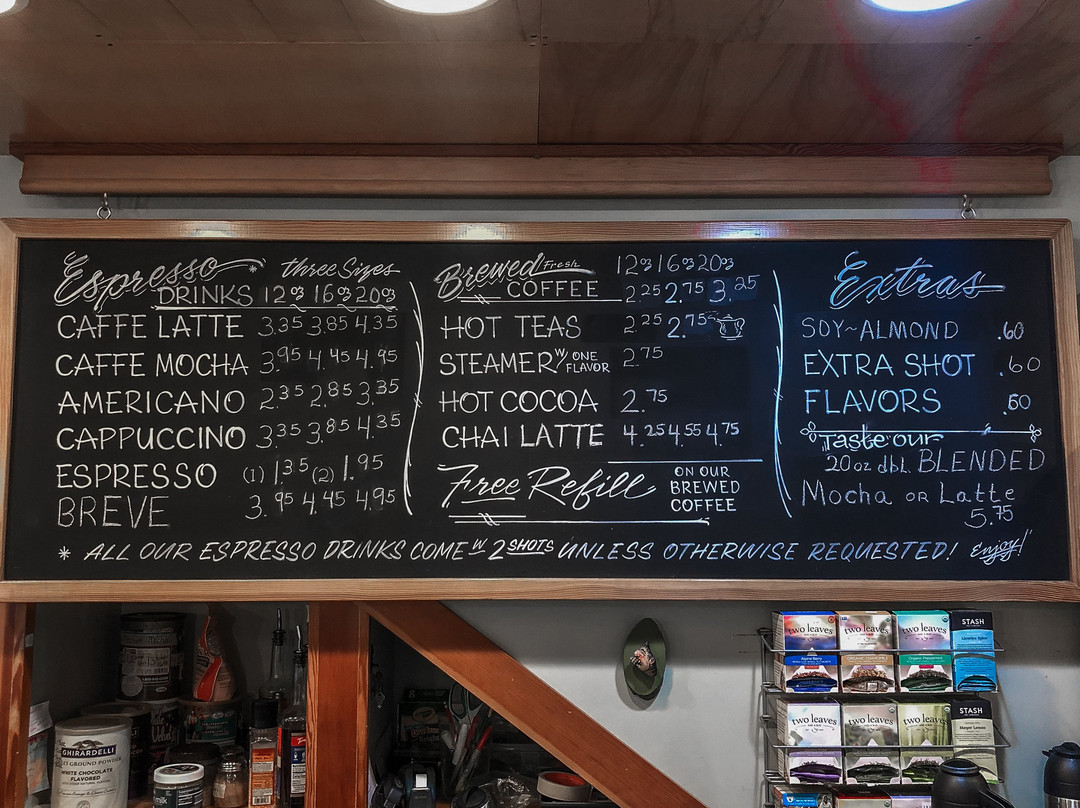 Espresso * three Sizes
DRINKS 12oz 16oz 20oz
CAFFE LATTE 3.35 3.85 4.35
CAFFE MOCHA 3.95 4.45 4.95
AMERICANO 2.35 2.85 3.35
CAPPUCCINO 3.35 3.85 4.35
ESPRESSO (1) 1.35 (2) 1.95
BREVE 3.95 4.45 4.95
Brewed Fresh 12oz 16oz 20oz
COFFEE 2.25 2.75 3.25
HOT TEAS 2.25 2.75
STEAMER W/ ONE FLAVOR 2.75
HOT COCOA 2.75
CHAI LATTE 4.25 4.55 4.75
Free Refill ON OUR
BREWED
COFFEE
Extras
SOY~ALMOND .60
EXTRA SHOT .60
FLAVORS .50
Taste our
20oz dbl. BLENDED
Mocha OR Latte
5.75
* ALL OUR ESPRESSO DRINKS COME W/ 2 SHOTS UNLESS OTHERWISE REQUESTED! Enjoy!
GHIRARDELLI
WHITE CHOCOLATE
FLAVORED
two leaves two leaves two leaves STASH
two leaves two leaves two leaves STASH